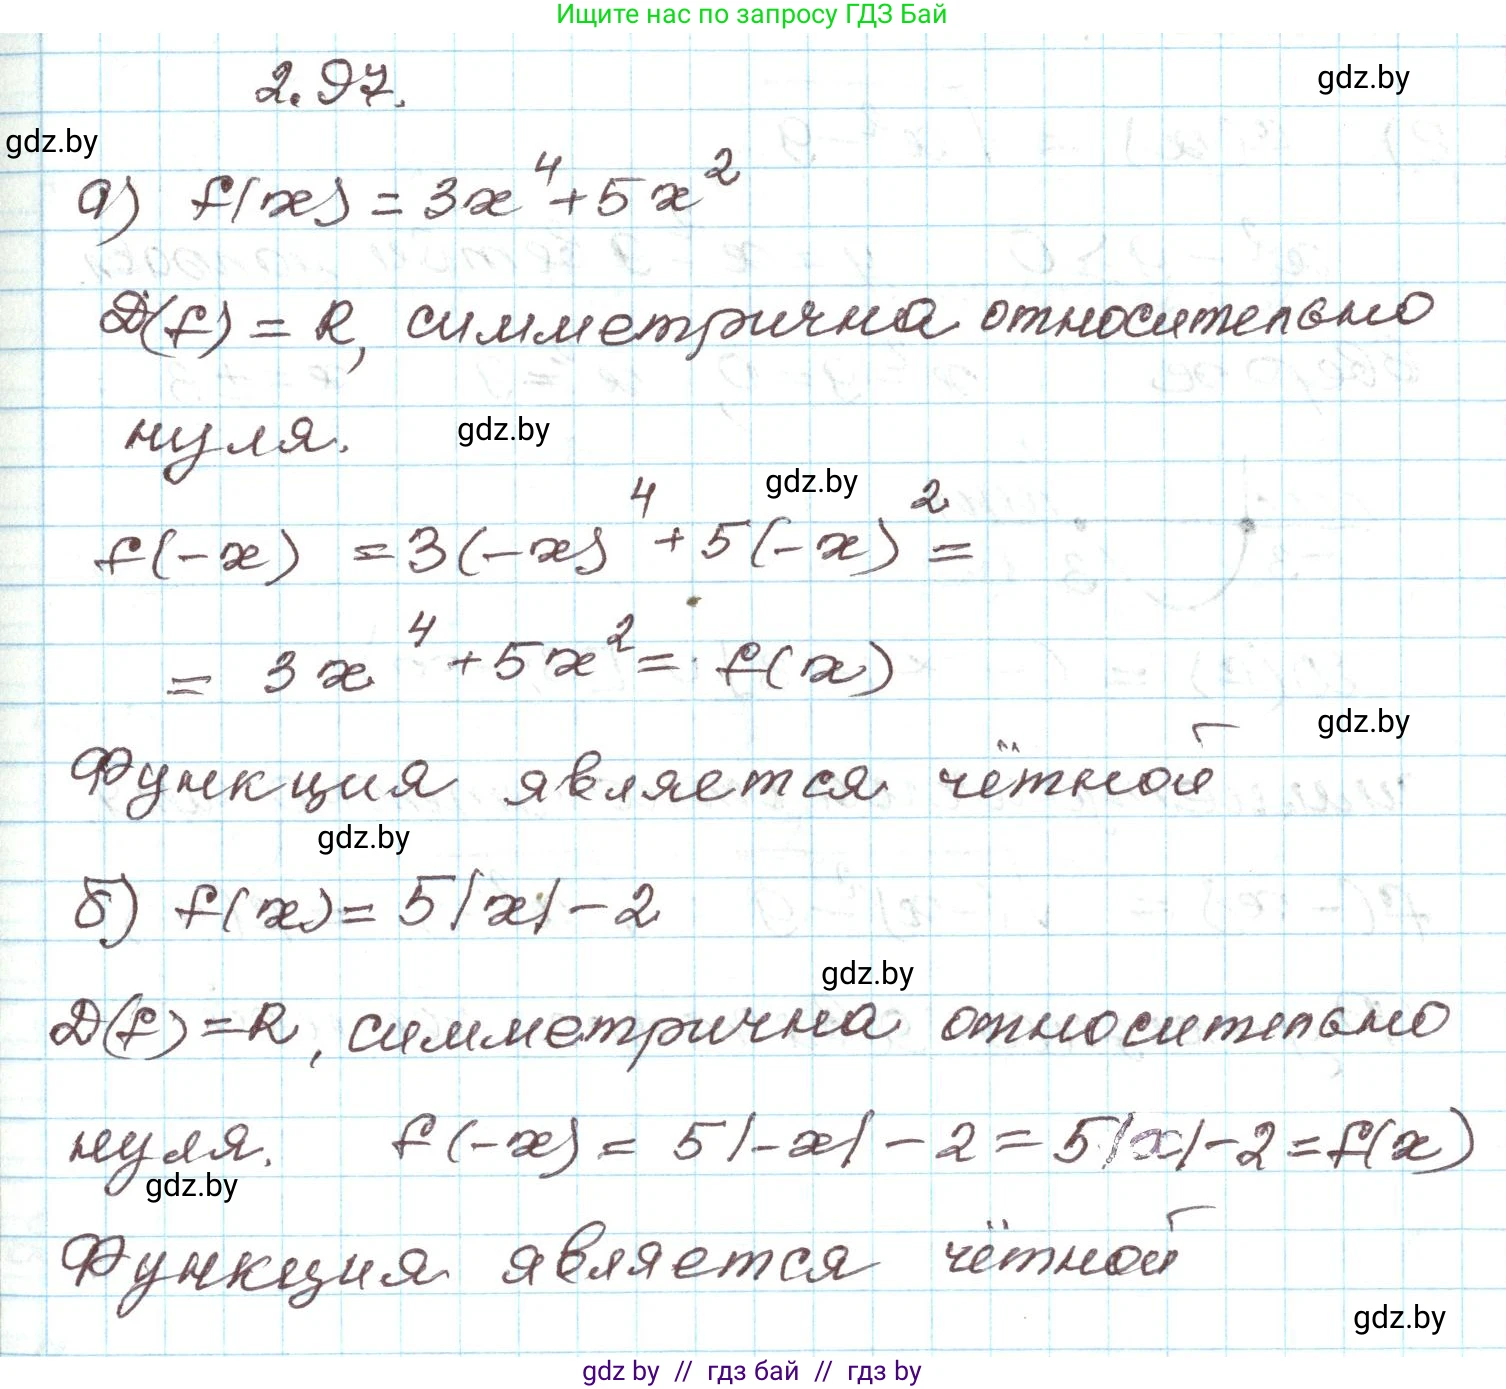 Ищите нас по запросу ГДЗ Бай
2.97.
gdz.by
gdz.by
а) f(x) = 3x⁴ + 5x²
D(f) = R, симметрична относительно
нуля.
gdz.by
gdz.by
f(-x) = 3(-x)⁴ + 5(-x)² =
= 3x⁴ + 5x² = f(x)
gdz.by
Функция является чётной
gdz.by
б) f(x) = 5|x| - 2
gdz.by
D(f) = R, симметрична относительно
нуля. f(-x) = 5|-x| - 2 = 5|x| - 2 = f(x)
gdz.by
Функция является чётной
gdz.by
gdz.by // гдз бай // гдз by